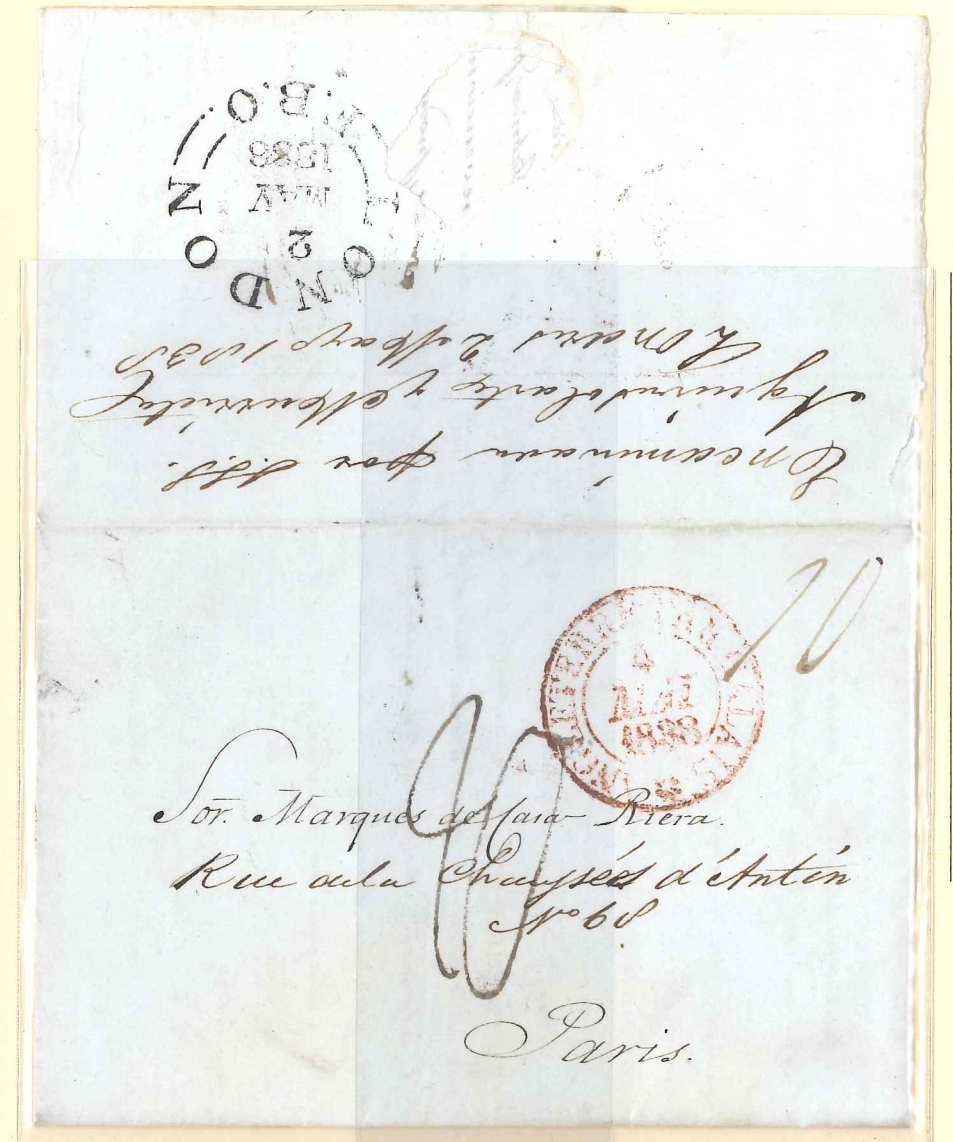 LONDON
2
MAY
1838
F.B.O.
Encaminada por S.S.S.
Aguirre Solarte y Murrieta
Londres 2 Mayo 1838
ANGLETERRE PAR CALAIS
4
MAI
1838
10
Sor. Marques de Casa Riera.
Rue de la Chaussée d'Antin
No 68
Paris.